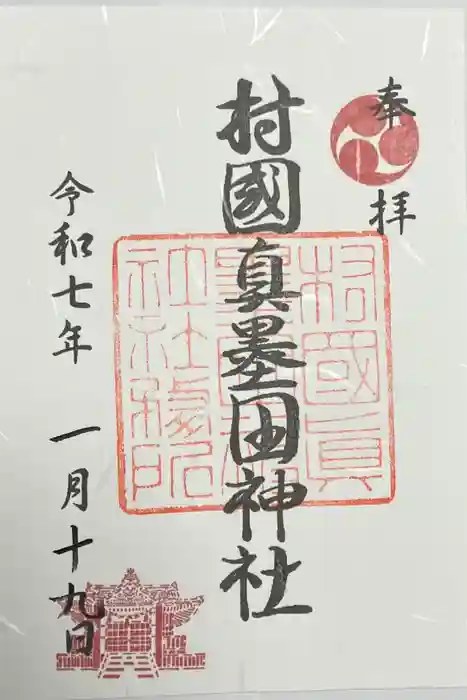 奉拝
村國真墨田神社
村國眞
墨田神
社社務所
令和七年 一月十九日